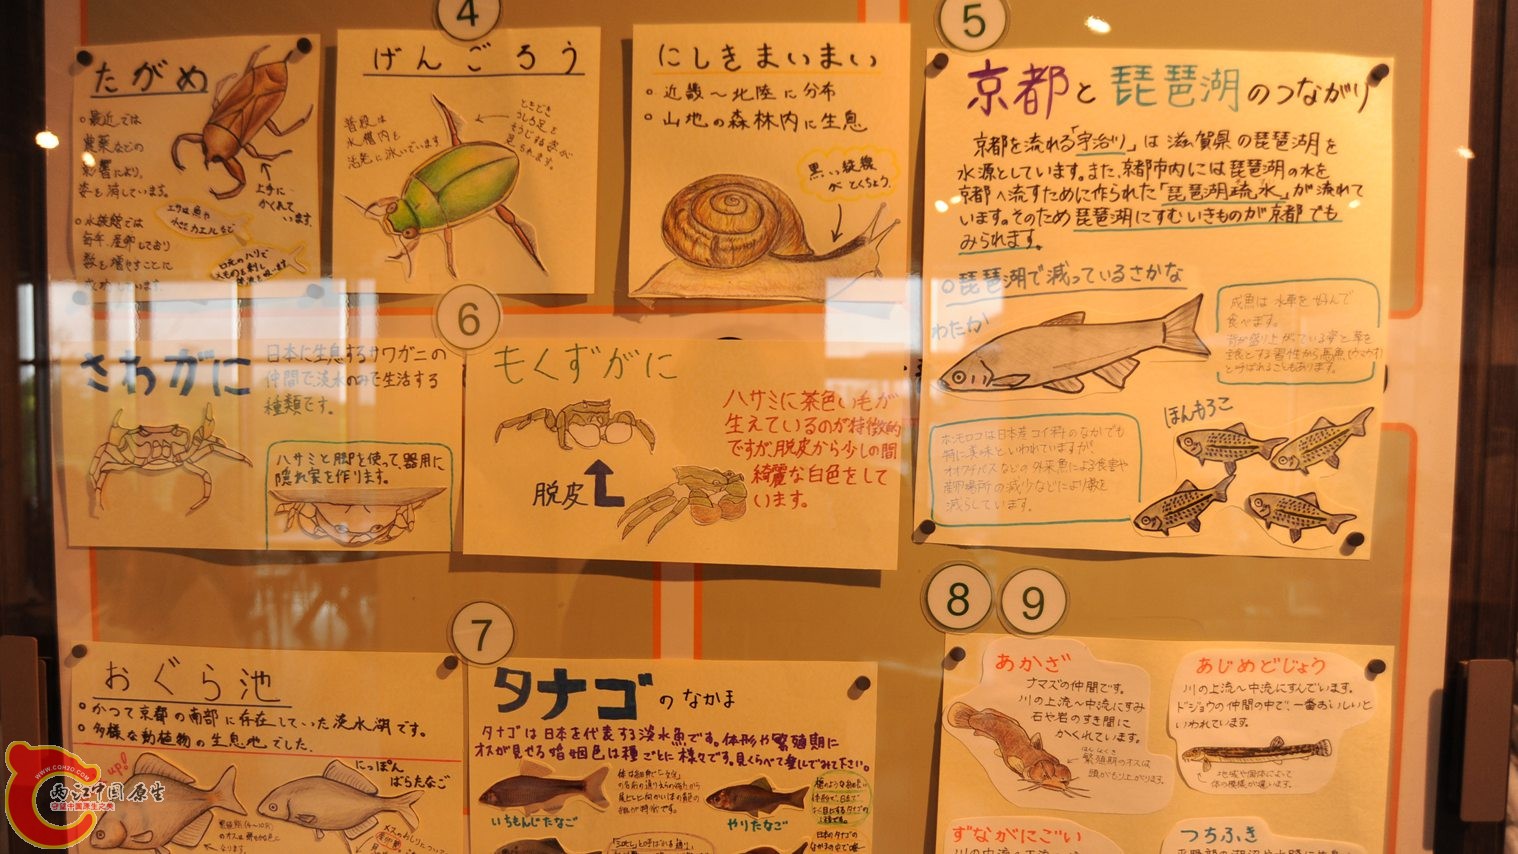 4
5
たがめ
最近では
農薬などの
影響により、
姿を消しています。
水族館では
毎年、産卵しており
数を増やすことに
上手に
かくれて
います
エサは魚や
げんごろう
普段は
水槽内を
活発に泳いでいます
ときどき
にしきまいまい
近畿〜北陸に分布
山地の森林内に生息
黒い縦線
がとくちょう。
京都と琵琶湖のつながり
京都を流れる「宇治川」は滋賀県の琵琶湖を
水源としています。また、京都市内には琵琶湖の水を
京都へ流すために作られた「琵琶湖疏水」が流れて
います。そのため琵琶湖にすむいきものが京都でも
みられます。
琵琶湖で減っているさかな
わたか
成魚は水草を好んで
食べます。
ほんもろこ
ホンモロコは日本産コイ科のなかでも
特に美味といわれていますが、
オオクチバスなどの外来魚による食害や
産卵場所の減少などにより数を
減らしています。
6
さわがに
日本に生息するサワガニの
仲間で、淡水のみで生活する
種類です。
ハサミと脚を使って、器用に
隠れ家を作ります。
もくずがに
脱皮
ハサミに茶色い毛が
生えているのが特徴的
ですが、脱皮から少しの間
綺麗な白色をして
います。
7
8
9
おぐら池
かつて京都の南部に存在していった淡水湖です。
多様な動植物の生息地でした.
up!
にっぽん
ばらたなご
タナゴのなかま
タナゴは日本を代表する淡水魚です。体形や繁殖期に
オスが見せる婚姻色は種ごとに様々です。見くらべて楽しんでみて下さい。
いちもんじたなご
やりたなご
あかざ
ナマズの仲間です。
川の上流〜中流にすみ
石や岩のすき間に
かくれています。
繁殖期のオスは
頭がもり上がります。
あじめどじょう
川の上流〜中流にすんでいます。
ドジョウの仲間の中で、一番おいしいと
いわれています。
地域や個体によって
体の模様が違います。
ずながにごい
つちふき
WWW.COH2O.COM
两江中国原生
守望中国原生之美